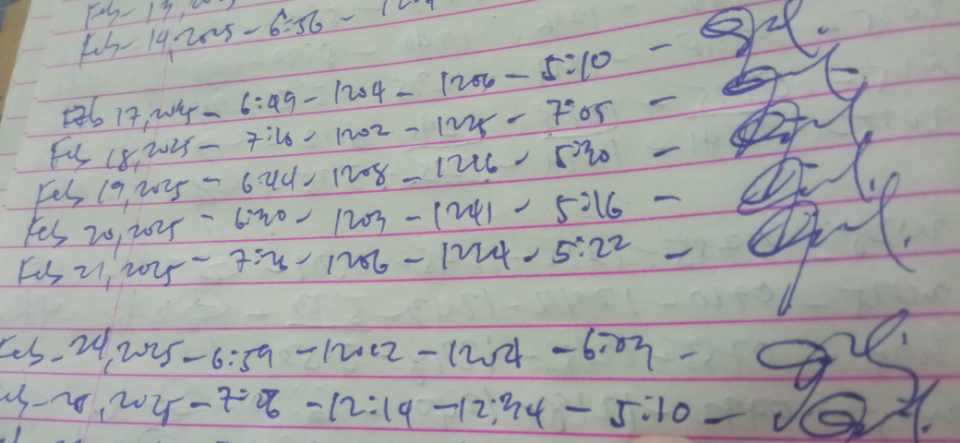 Feb 14, 2025 - 6:56 -
Feb 17, 2025 - 6:49 - 1204 - 1206 - 5:10 -
Feb 18, 2025 - 1202 - 1225 - 7:05 -
Feb 19, 2025 - 6:44 - 1208 - 5:30 -
Feb 20, 2025 - 6:30 - 1203 - 1241 - 5:16 -
Feb 21, 2025 - 1206 - 1224 - 5:22 -
Feb - 24, 2025 - 6:59 - 1202 - 1204 -
2025 - 12:14 - 12:34 - 5:10 -